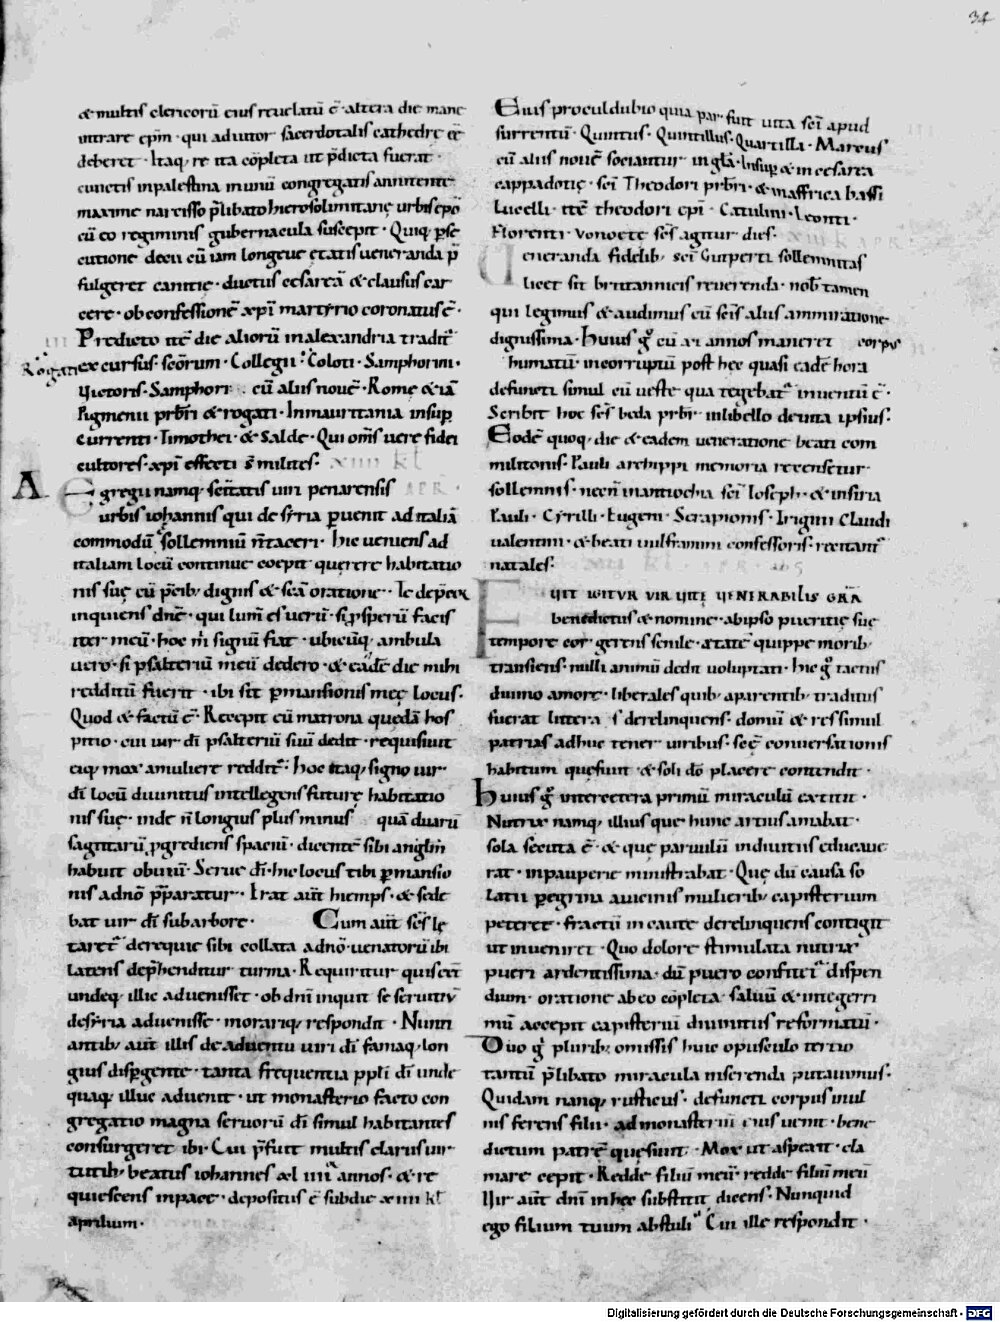 34
& multis clericorū eius reuelatū ē · altera die mane
intrare ep̄m · qui adiutor sacerdotalis cathedrę ēē
deberet · Itaq; re ita cōpleta ut p̄dicta fuerat ·
cunctis inpalestina inunū congregatis annitente
maxime narcisso p̄libato hierosolimitanę urbis ep̄o
cū eo regiminis gubernacula suscepit · Quiq; p̄se
cutione decii cū iam longeuę etatis ueneranda p̄
fulgeret canitie · ductus cesareā & clausus car
cere · ob confessionē xp̄i martyrio coronatus ē ·
Predicto itē die aliorū inalexandria tradit̄
Rogati
ex cursus · sc̄orum · Collegii · Coloti · Samphorini ·
Victoris · Samphori cū aliis nouē · Romę & iā
Pigmenii pr̄bri & rogati · Inmauritania insup̄
currenti · Timothei · & salde · Qui om̄s uere fidei
cultores xp̄i effecti s̄ milites · xiiii kl
apr ·
A
Egregii namq; sc̄itatis uiri penarensis
urbis iohannis qui de syria p̄uenit ad italiā
commodū sollemniū n̄ taceri · hic ueniens ad
italiam locū continuę coepit querere habitatio
nis suę cū p̄cib; dignis & sc̄ā oratione · Te dep̄cor
inquiens dn̄e · qui lum̄ es uerū · si p̄sperū facis
iter meū · hoc m̄ signū fiat · ubicūq; ambula
uero · si psalteriū meū dedero · & eadē die mihi
redditū fuerit · ibi sit p̄mansionis meę locus ·
Quod & factū ē · Recepit eū matrona quedā hos
pitio · cui uir dī psalteriū suū dedit · requisiuit
eiq; mox a muliere reddit̄ · hoc itaq; signo uir
dī locū diuinitus intellegens futurę habitatio
nis suę · inde n̄ longius plus minus quā duarū
sagittarū p̄grediens spaciū · dicentē sibi anglm̄
habuit obuiū · Serue dī · hic locus tibi p̄mansio
nis adn̄o p̄paratur · Erat aut̄ hiemps · & sede
bat uir dī subarbore · Cum aut̄ sc̄s lę
taret̄ derequie sibi collata adn̄o · uenatorū ibi
latens dep̄henditur turma · Requiritur quis eēt
undeq; illic aduenisset · ob dn̄i inquit se seruitiū
desyria aduenisse · morariq; respondit · Nunti
antib; aut̄ illis de aduentu uiri dī famaq; lon
gius disp̄gente · tanta frequentia pp̄li dī unde
quaq; illuc aduenit · ut monasterio facto con
gregatio magna seruorū dī simul habitantes
consurgeret ibi · Cui p̄fuit multis clarus uir
tutib; beatus iohannes xl iiii annos · & re
quiescens inpace · depositus ē subdie xiiii kl
aprilium ·
Eius proculdubio quia par fuit uita sc̄i apud
surrentū · Quintus · Quintillus · Quartilla · Marcus
cū aliis nouē sociantur in gl̄a · Insup̄ & in cesarea
cappadotię · sc̄i Theodori pr̄bri · & inaffrica bassi
Lucelli · itē theodori ep̄i · Catulini · Leonti ·
Florenti · vonocte sc̄s agitur dies ·
xiii k apr
Veneranda fidelib; sc̄i Gutperti sollemnitas
licet sit brittannicis reuerenda · nob̄ tamen
qui legimus & audimus cū sc̄is aliis ammiratione
dignissima · Huius ḡ cū xi annos maneret corpus
humatū · incorruptū post hęc quasi eadē hora
defuncti simul cū ueste qua tegebat̄ inuentū ē ·
Scribit hoc sc̄s beda pr̄br · inlibello deuita ipsius ·
Eodē quoq; die & eadem ueneratione beati com
militonis · Pauli archippi memoria recensetur
sollemnis · necn̄ inantiochia sc̄i Ioseph · & insiria
Pauli · Cyrilli · Eugeni · Serapionis · Irigini Claudi
ualentini · & beati uulframni confessoris · recitant̄
natales · xii kl · apr
FUIT IGITUR VIR UITE UENERABILIS GRĀ
benedictus & nomine · abipso pueritię suę
tempore cor gerens senile · ętatē quippe morib;
transiens · nulli animū dedit uoluptati · hic ḡ tactus
diuino amore · liberales quib; aparentib; traditus
fuerat littera s̄ derelinquens · domū & res simul
patrias adhuc tener uiribus · sc̄ę conuersationis
habitum quęsiuit · & soli dō placere contendit ·
Huius ḡ inter cetera primū miraculū extitit ·
Nutrix namq; illius que hunc artius amabat ·
sola secuta ē · & que paruulū indiuitiis educaue
rat · inpauperie ministrabat · Quę dū causa so
latii peregrina auicinis mulierib; capisterium
peteret · fractū incaute derelinquens contigit
ut inueniret · Quo dolore stimulata nutrix
pueri ardentissima · dū puero confitet̄ dispen
dium · oratione ab eo cōpleta · saluū & integerri
mū accepit capisteriū diuinitus reformatū ·
Duo ḡ plurib; omissis huic opusculo tertio
tantū p̄libato miracula inserenda putauimus ·
Quidam nanq; rusticus · defuncti corpus inul
nis ferens filii · ad monasteriū eius uenit · bene
dictum patrē quęsiuit · Mox ut aspexit · cla
mare cepit · Redde filiū meū · redde filiū meū
Vir aut̄ dn̄i inhęc substitit dicens · Nunquid
ego filium tuum abstuli · Cui ille respondit ·
Digitalisierung gefördert durch die Deutsche Forschungsgemeinschaft - DFG